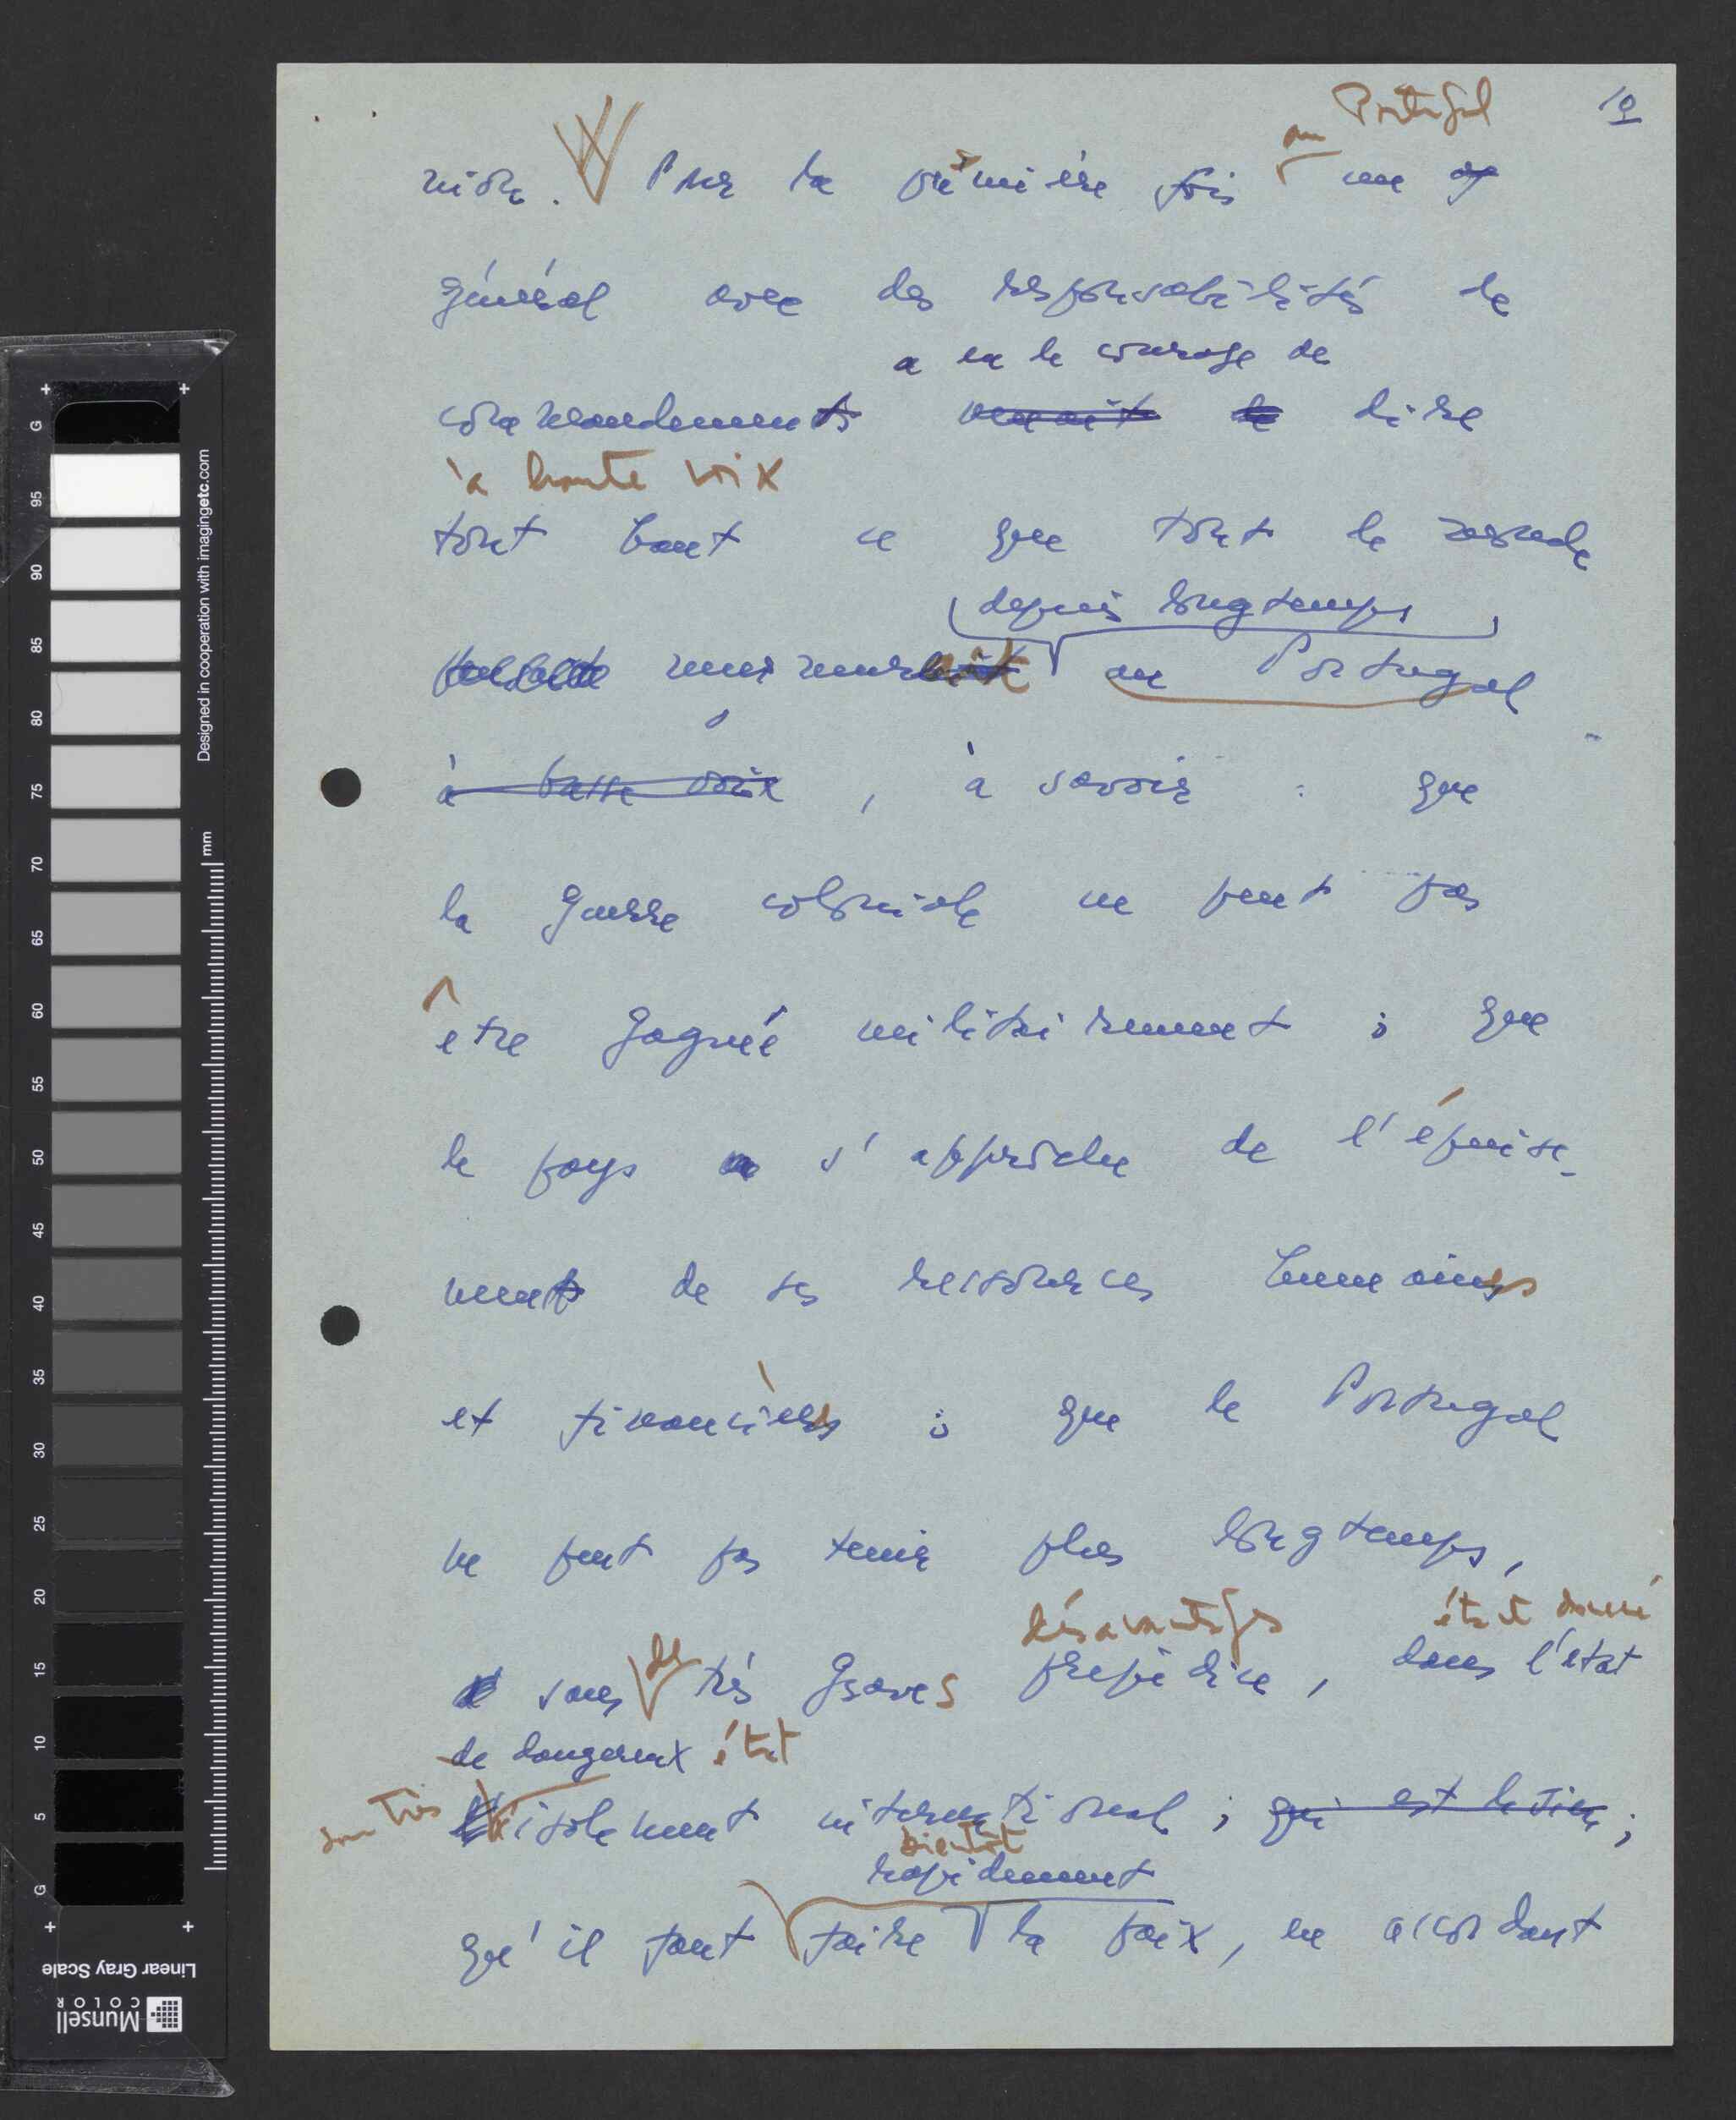 au Portugal 10
Pour la première fois une
général avec des responsabilités de
a eu le courage de
commandements venait de dire
à haute voix
tout haut ce que tout le monde
depuis longtemps
murmurait au Portugal
à basse voix , à savoir : que
la guerre coloniale ne peut pas
être gagnée militairement ; que
le pays s'approche de l'épuise-
ment de ses ressources humaines
et financières ; que le Portugal
ne peut pas tenir plus longtemps,
désavantages étant donné
sans de très graves préjudice, dans l'état
de dangereux état
son très isolement international ; qui est le sien ;
bientôt
rapidement
qu'il faut faire la paix, en accordant
G 95 90 85 80 75 70 65 60 55 50 45 40 35 30 25 20 15 10 5 G
mm
Designed in cooperation with imagingetc.com
Linear Gray Scale
Munsell
COLOR